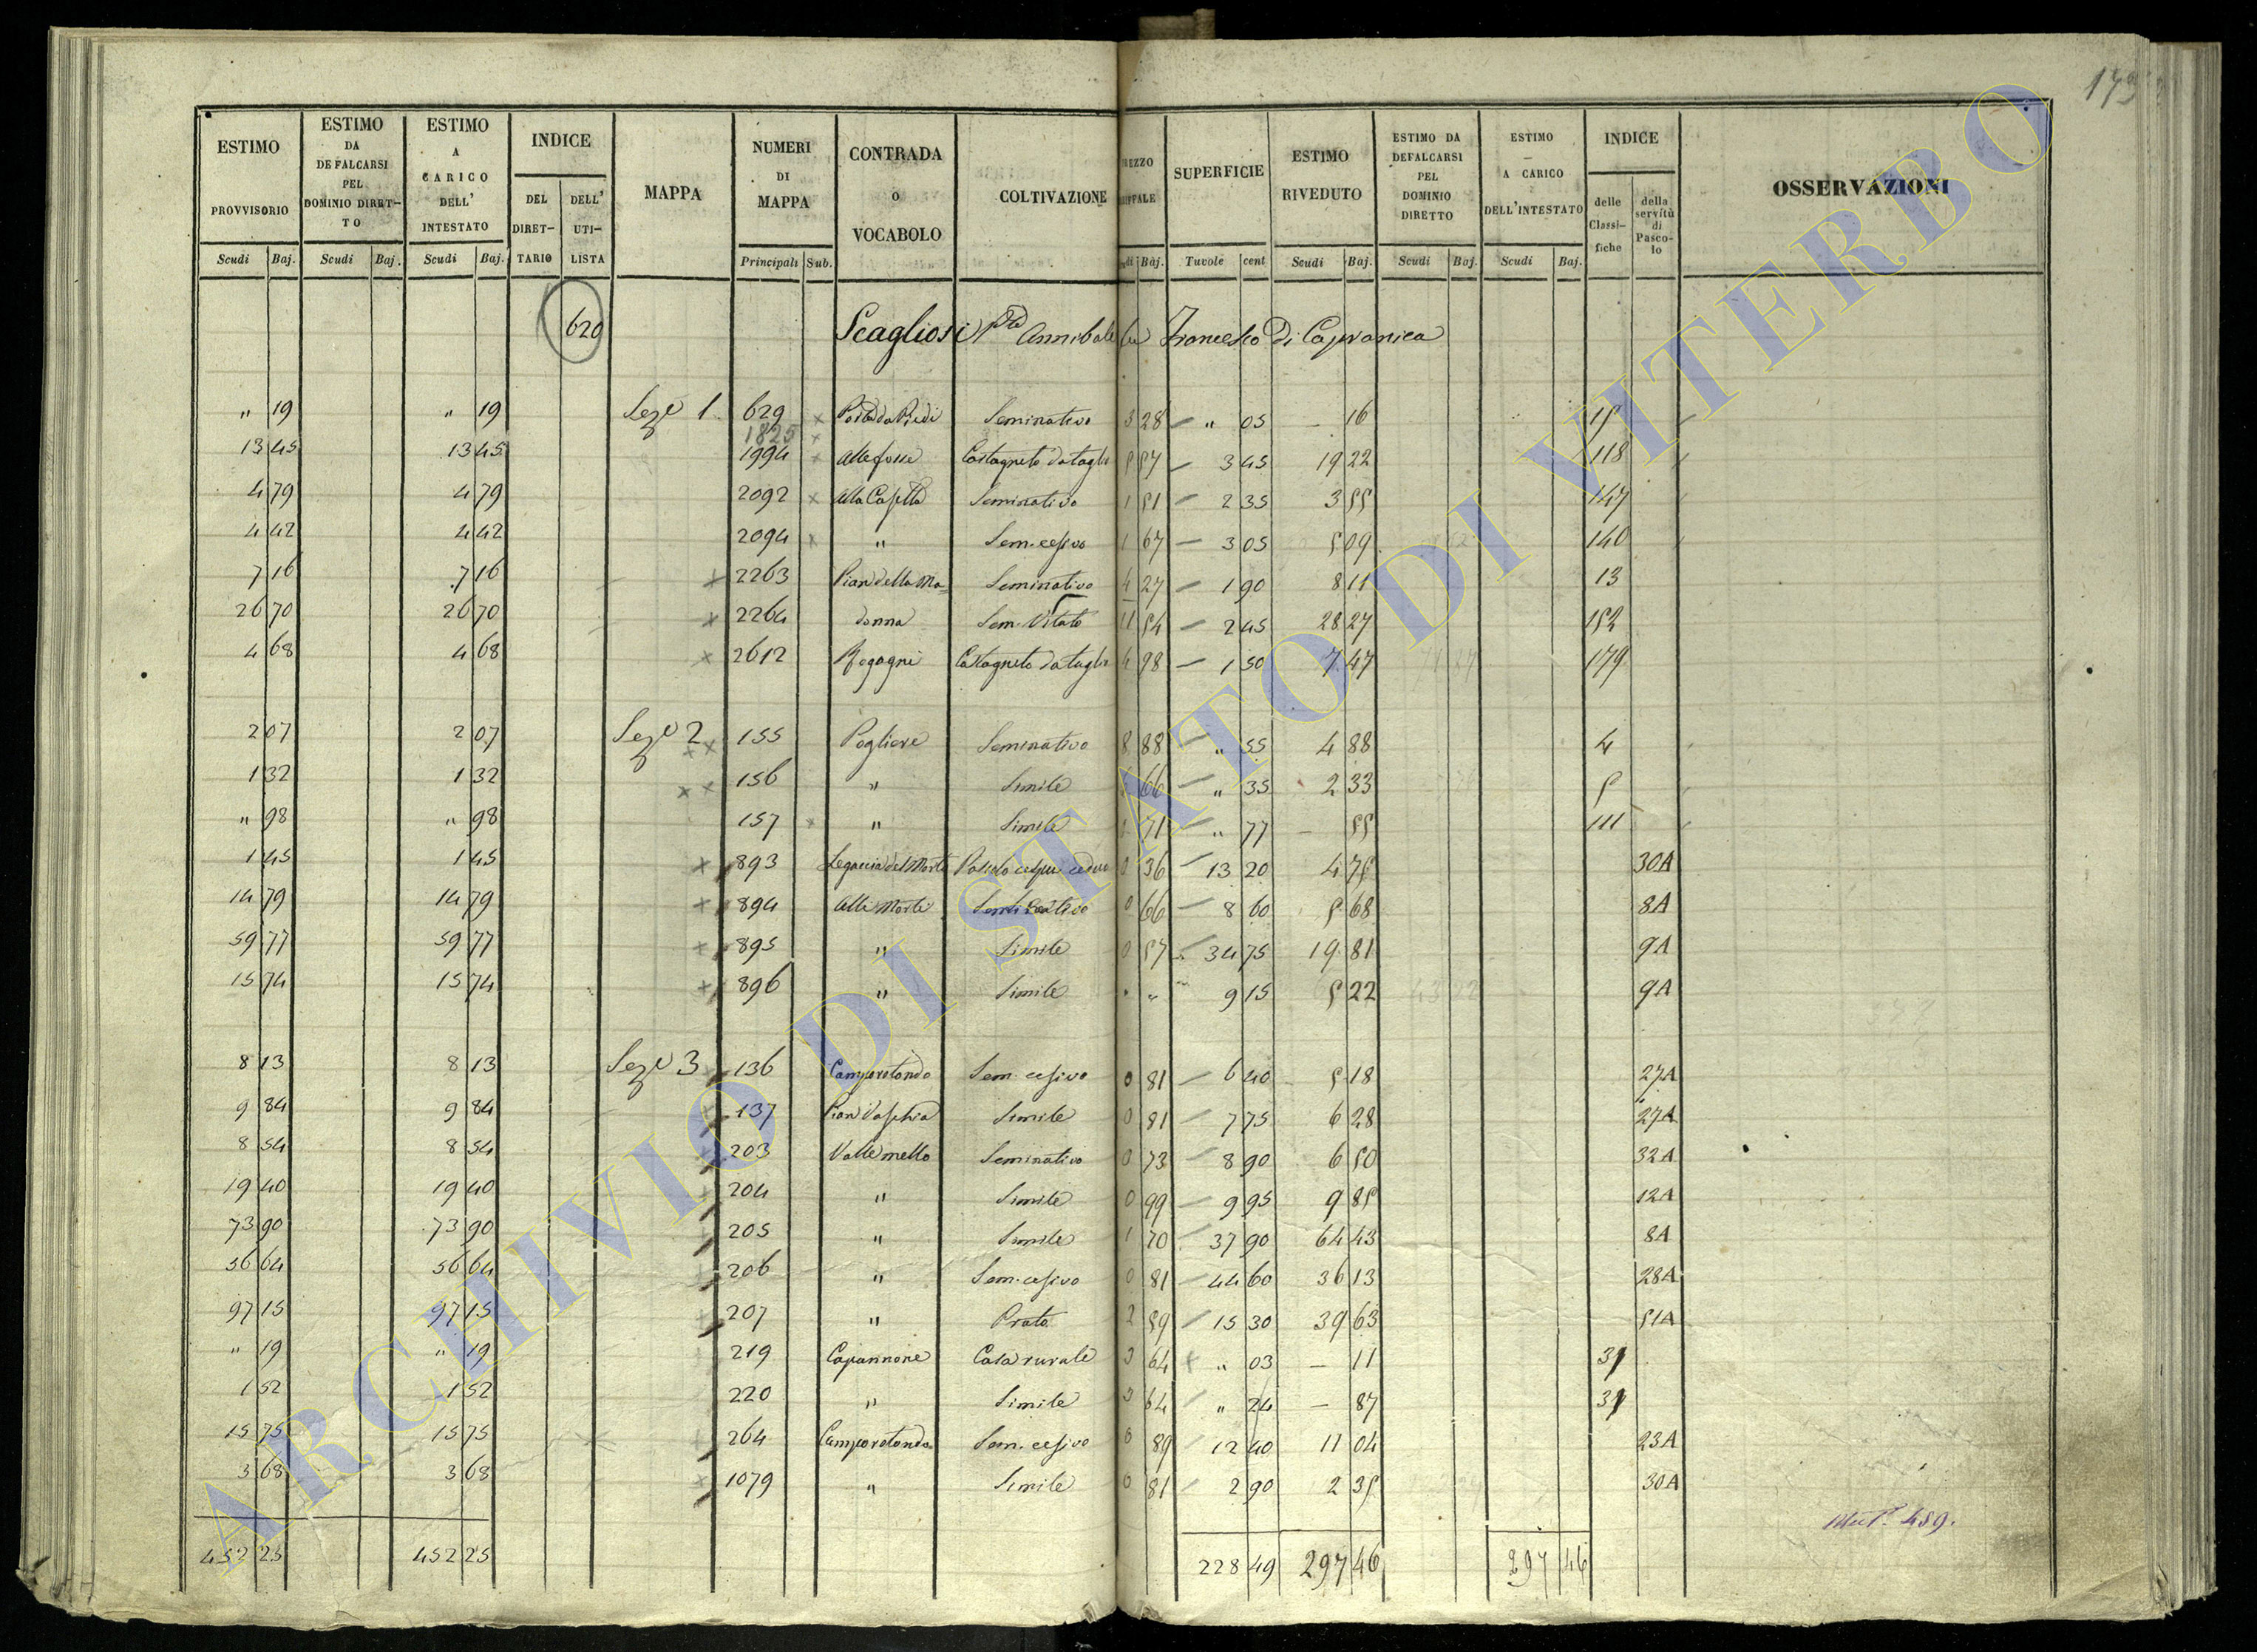 173
ESTIMO PROVVISORIO
ESTIMO DA DEFALCARSI PEL DOMINIO DIRET-TO
ESTIMO A CARICO DELL' INTESTATO
INDICE
DEL DIRET-TARIO
DELL' UTI-LISTA
MAPPA
NUMERI DI MAPPA
CONTRADA O VOCABOLO
COLTIVAZIONE
SUPERFICIE
ESTIMO RIVEDUTO
ESTIMO DA DEFALCARSI PEL DOMINIO DIRETTO
ESTIMO — A CARICO DELL'INTESTATO
INDICE
delle Classi-fiche
della servitù di Pasco-lo
OSSERVAZIONI
Scudi Baj. Scudi Baj. Scudi Baj. Principali Sub. Baj. Tavole cent Scudi Baj. Scudi Baj. Scudi Baj.
620 Scagliosi Annibale fu Francesco di Capranica
" 19 " 19 Seze 1 629 Seminativo 3 28 " 05 — 16
1825
13 45 13 45 1994 Alle fosse Castagneto da taglio 5 57 3 45 19 22 118
4 79 4 79 2092 Alla Casetta Seminativo 1 51 2 35 3 55 147
4 42 4 42 2094 " Sem. cesivo 1 67 3 05 5 09 140
7 16 7 16 2263 Pian della Ma= Seminativo 4 27 1 90 8 11 13
26 70 26 70 2264 donna Sem. Vitato 11 54 2 45 28 27 152
4 68 4 68 2612 Castagneto da taglio 4 98 1 50 7 47 179
2 07 2 07 Seze 2 155 Pogliere Seminativo 8 88 " 55 4 88 4
1 32 1 32 156 " Simile 66 " 35 2 33 5
" 98 " 98 157 " Simile 71 " 77 — 55 111
1 45 1 45 893 Pascolo cespu. ceduo 0 36 13 20 4 75 30A
14 79 14 79 894 Alli Morti Seminativo 0 66 8 60 5 68 8A
59 77 59 77 895 " Simile 0 57 34 75 19 81 9A
15 74 15 74 896 " Simile " " 9 15 5 22 9A
8 13 8 13 Seze 3 136 Camporotondo Sem. cesivo 0 81 6 40 5 18 27A
9 84 9 84 137 Simile 0 81 7 75 6 28 27A
8 54 8 54 203 Valle mello Seminativo 0 73 8 90 6 50 32A
19 40 19 40 204 " Simile 0 99 9 95 9 85 12A
73 90 73 90 205 " Simile 1 70 37 90 64 43 8A
56 64 56 64 206 " Sem. cesivo 0 81 44 60 36 13 28A
97 15 97 15 207 " Prato 2 59 15 30 39 63 51A
" 19 " 19 219 Capannone Casa rurale 3 64 " 03 — 11 31
1 52 1 52 220 " Simile 3 64 " 24 — 87 31
15 75 15 75 264 Camporotondo Sem. cesivo 0 89 12 40 11 04 23A
3 68 3 68 1079 " Simile 0 81 2 90 2 35 30A
Mut. 489.
452 25 452 25 228 49 297 46 297 46
ARCHIVIO DI STATO DI VITERBO